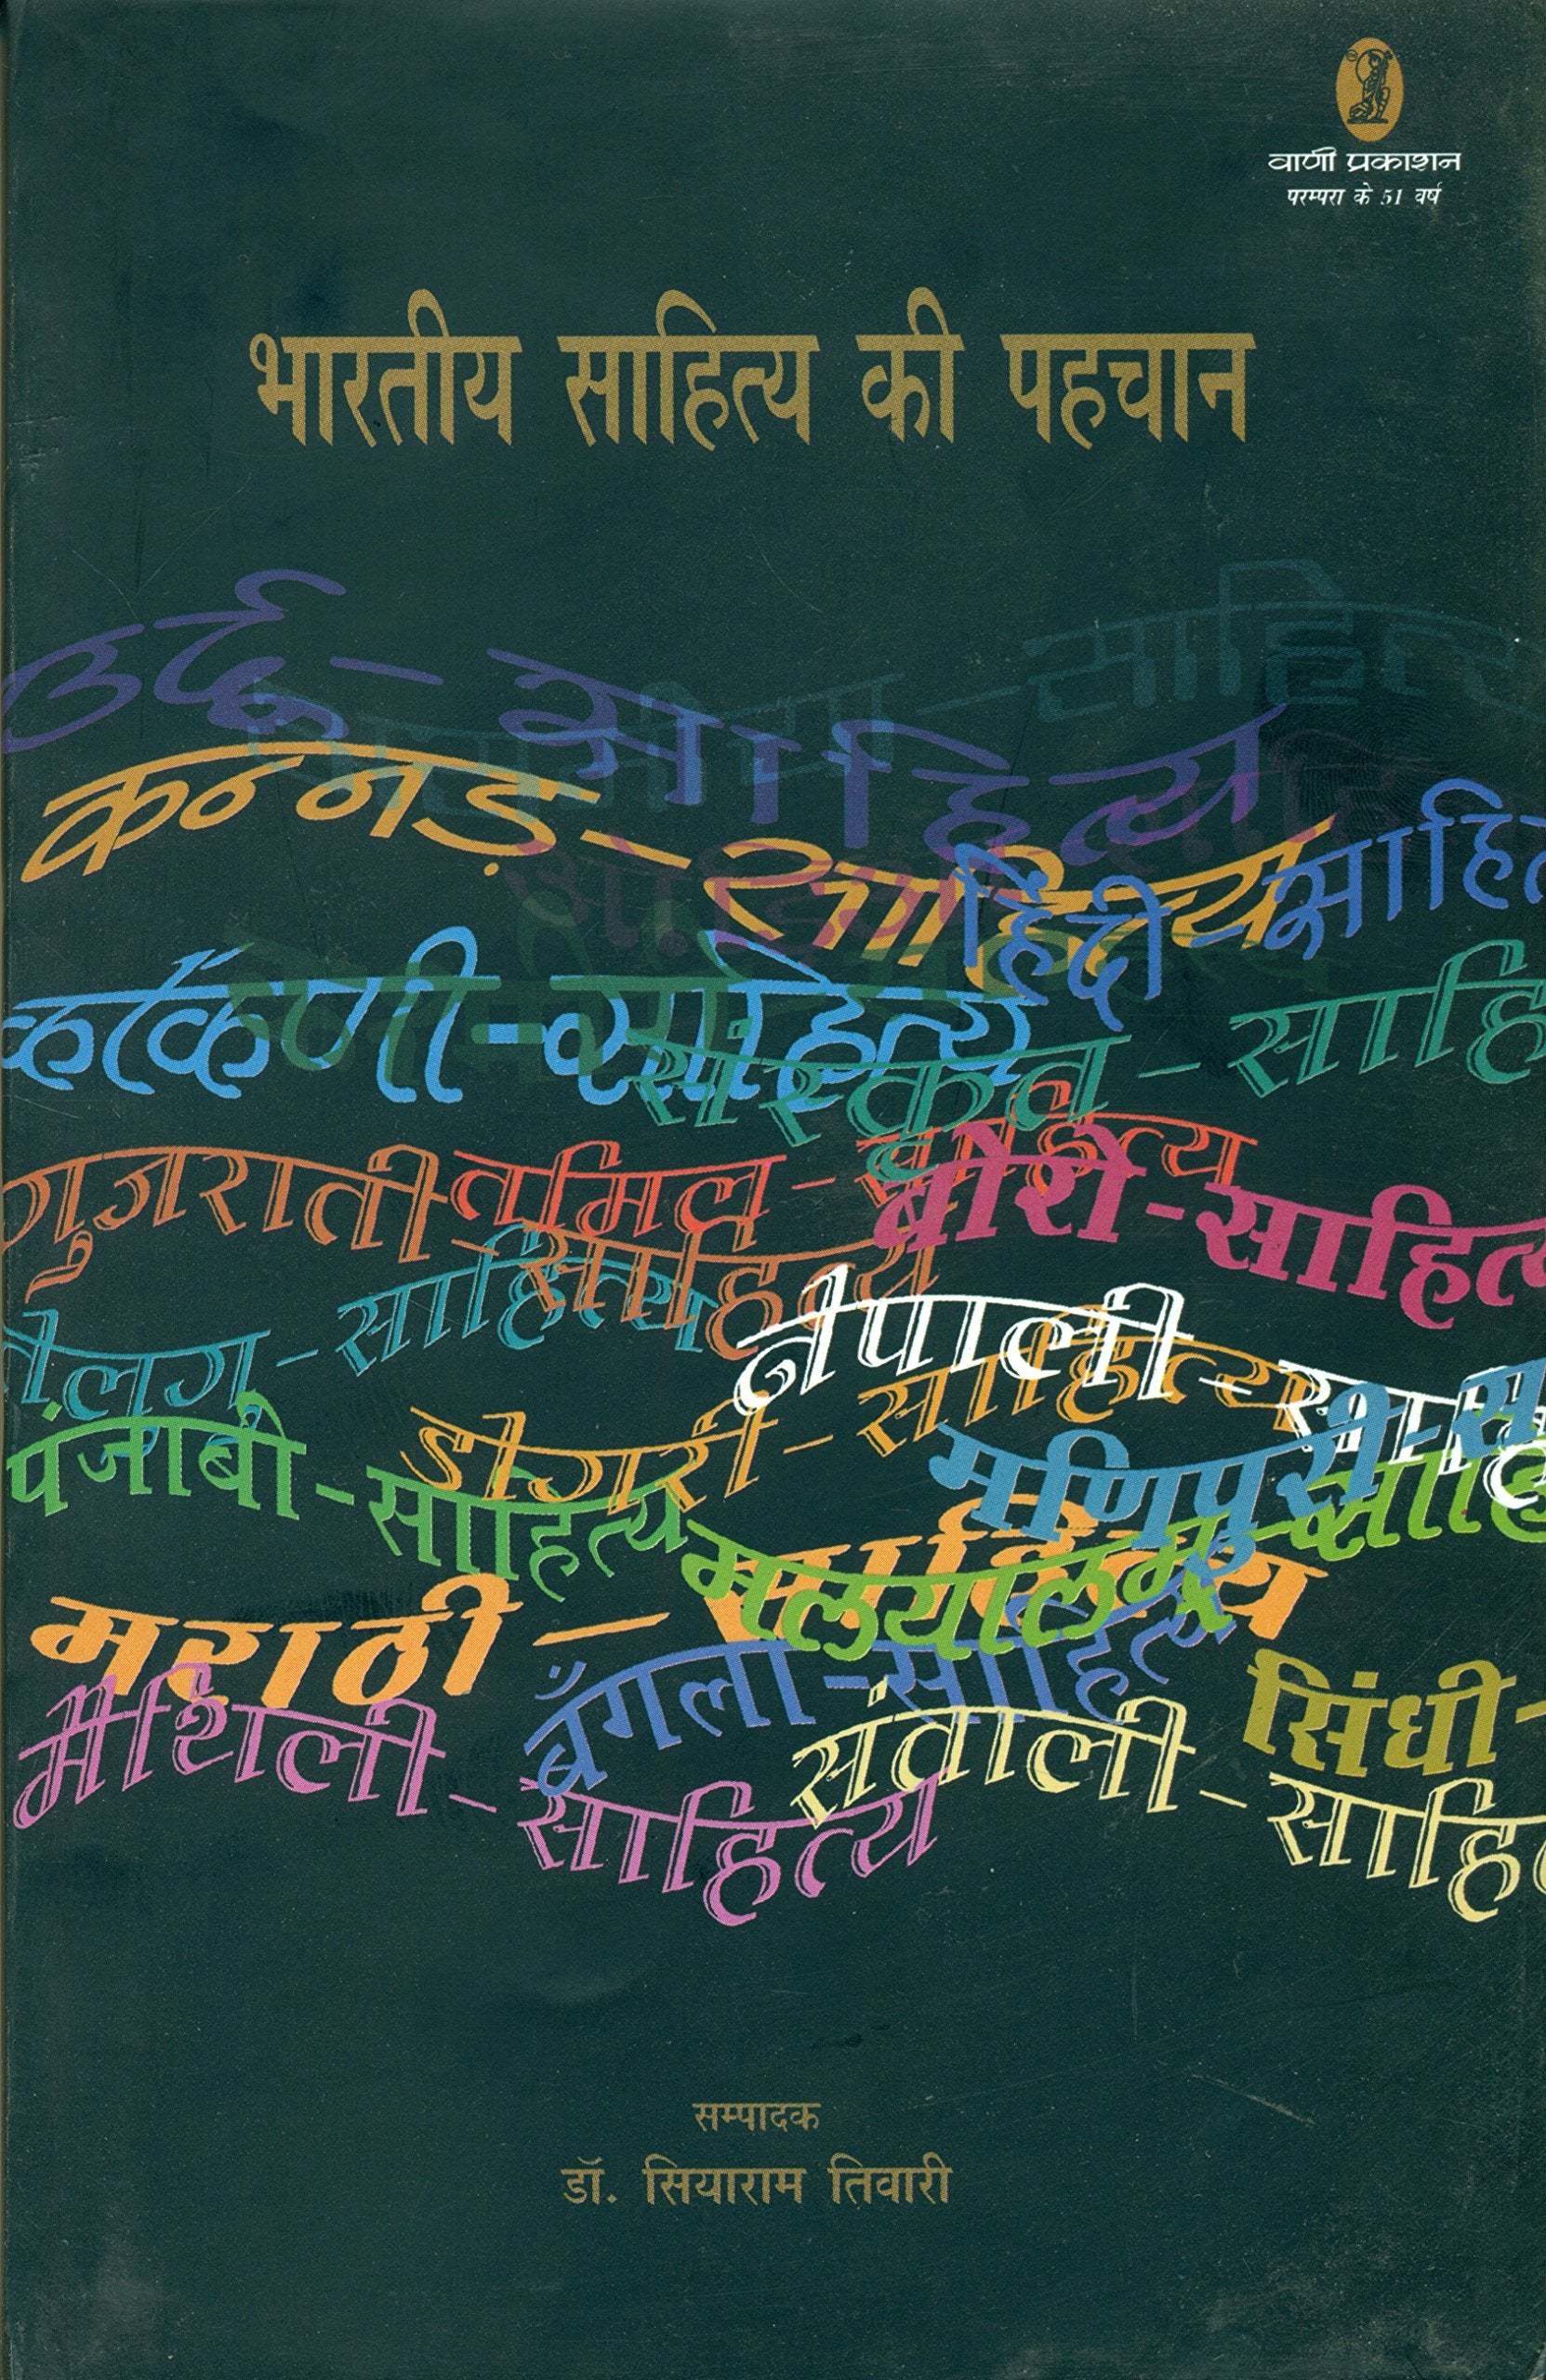 वाणी प्रकाशन
परम्परा के 51 वर्ष
भारतीय साहित्य की पहचान
उर्दू - साहित्य
साहित्य
कन्नड़ - साहित्य
हिंदी - साहित
कोंकणी - साहित्य
संस्कृत - साहि
तमिल - साहित्य
गुजराती - साहित्य
बोरो - साहित्य
तेलगु - साहित्य
नेपाली - साहि
डोगरी - साहित्य
पंजाबी - साहित्य
मणिपुरी - स
मलयालम् - साहि
मराठी - साहित्य
बँगला - साहित्य
मैथिली - साहित्य
सिंधी -
संताली - साहित
सम्पादक
डॉ. सियाराम तिवारी